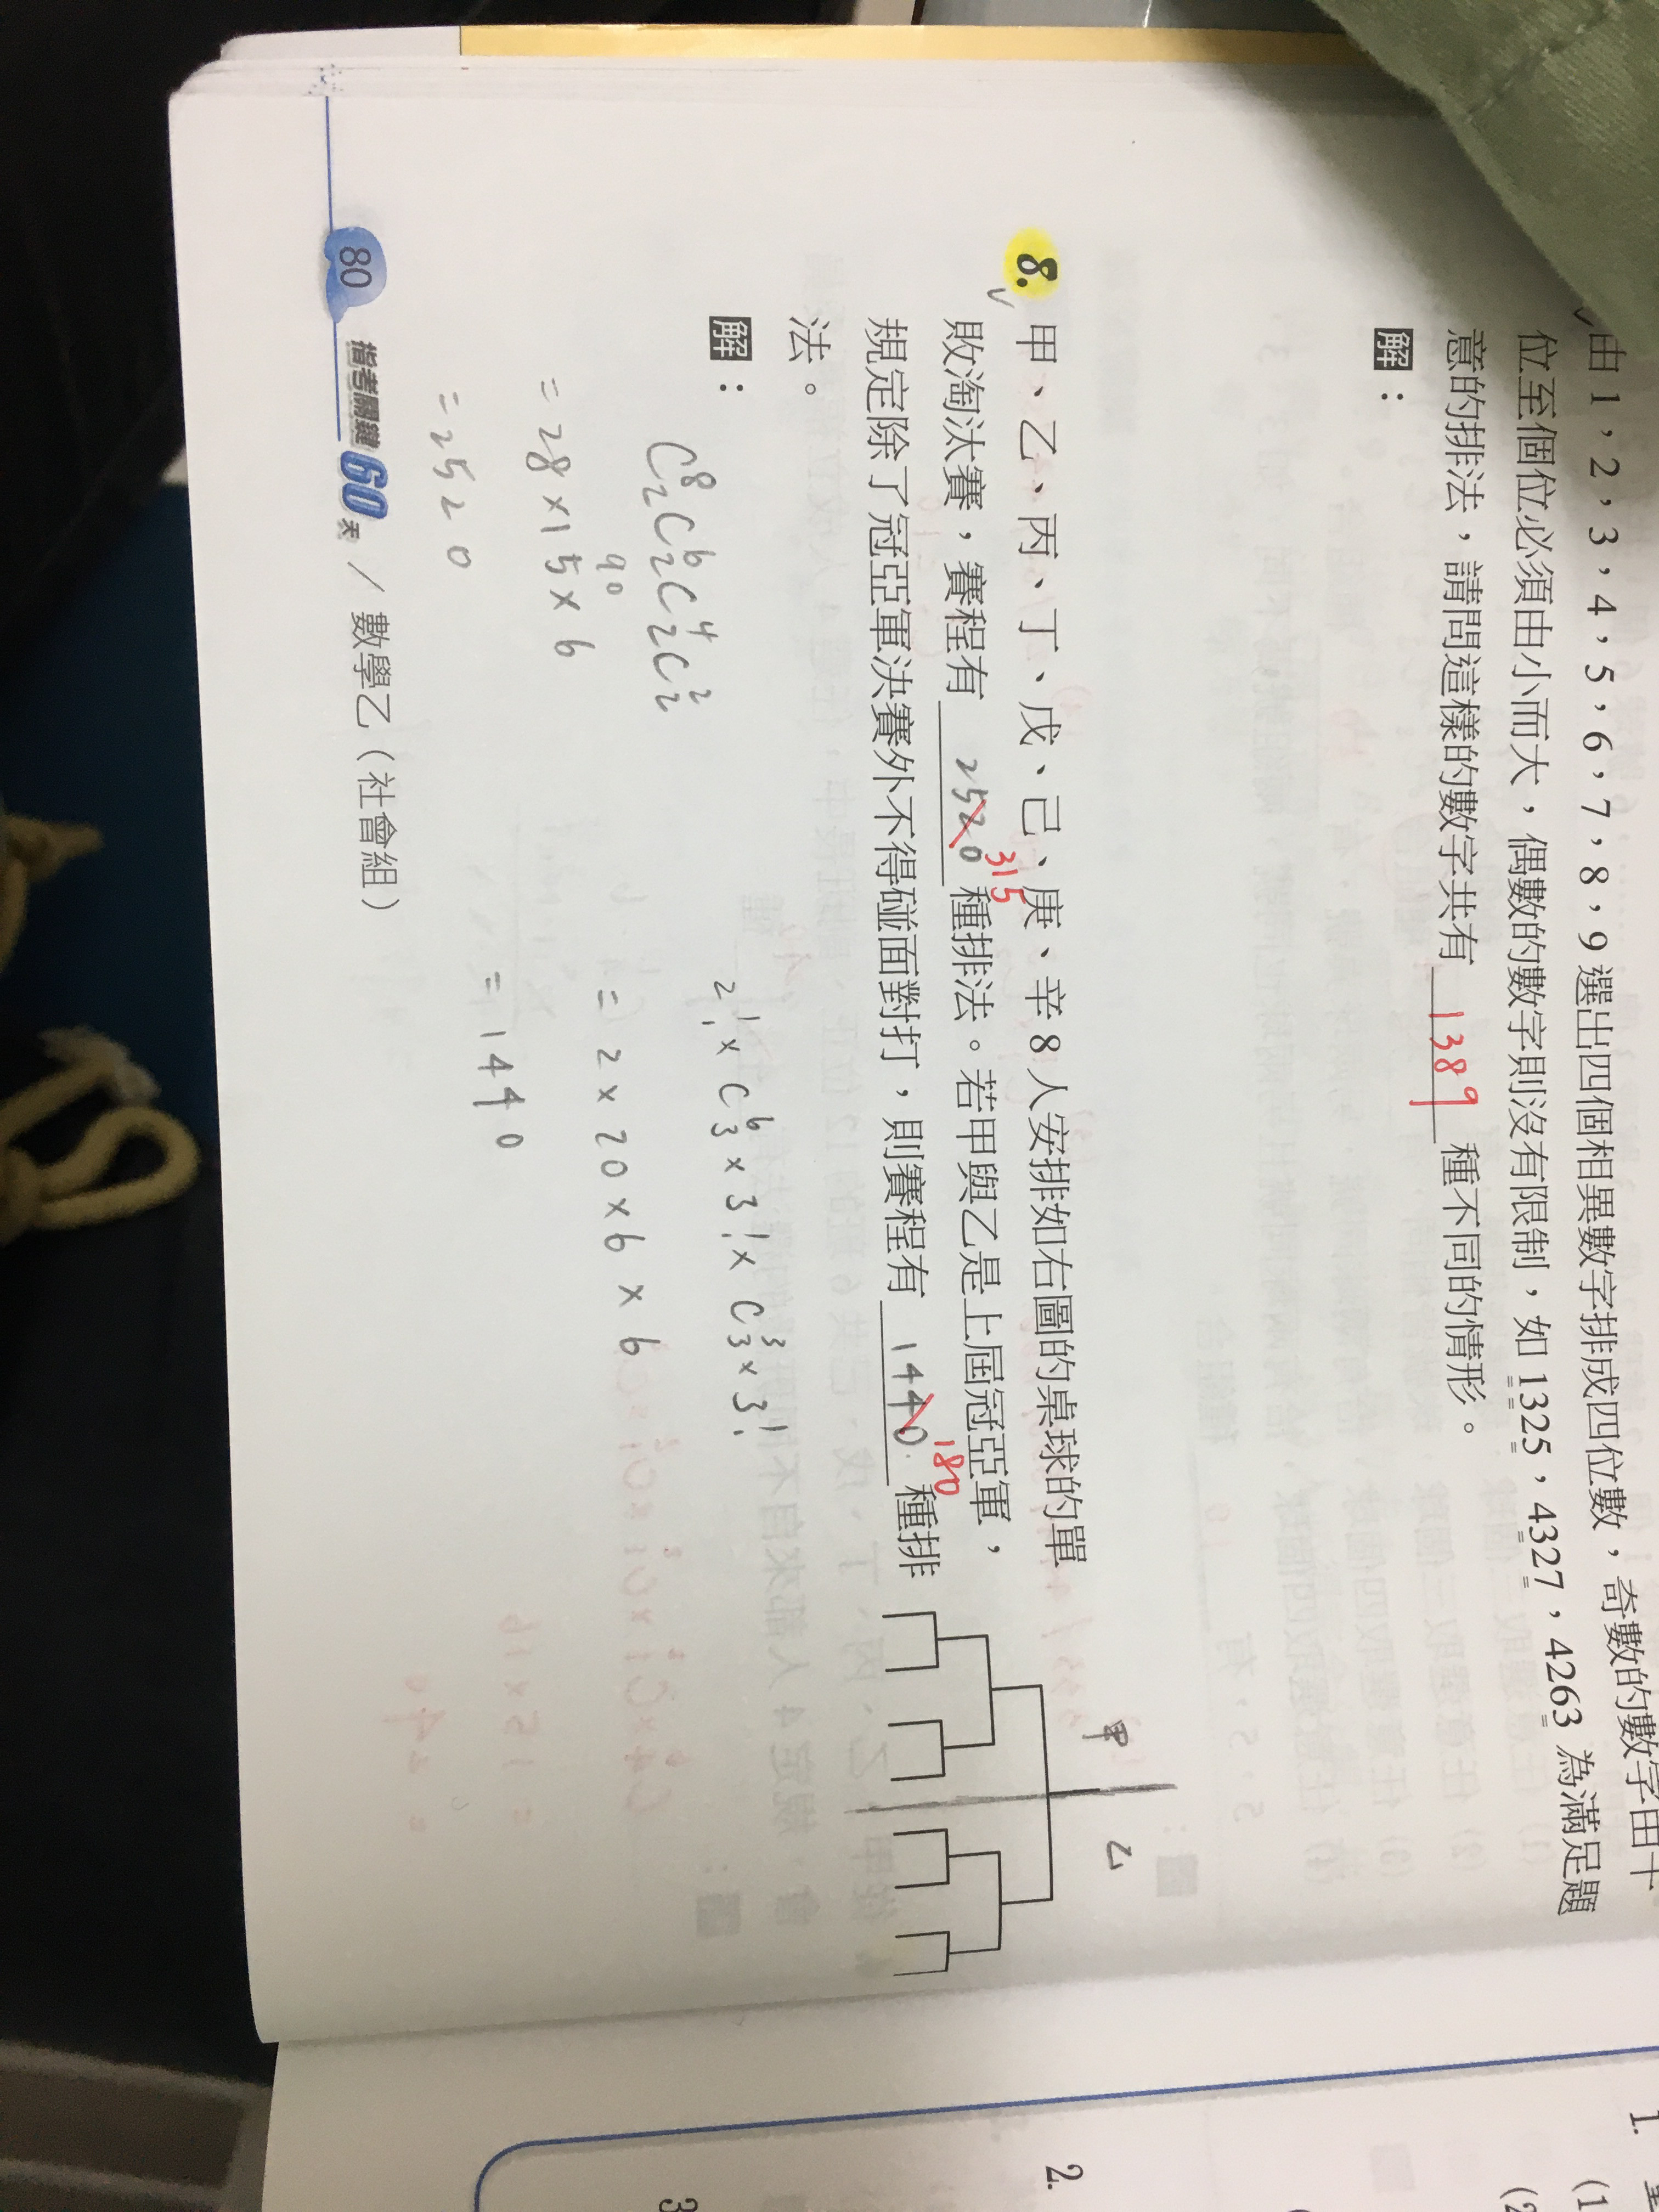 由 1，2，3，4，5，6，7，8，9 選出四個相異數字排成四位數，奇數的數字由千
位至個位必須由小而大，偶數的數字則沒有限制，如 1325，4327，4263 為滿足題
意的排法，請問這樣的數字共有 1389 種不同的情形。
解：
8. 甲、乙、丙、丁、戊、己、庚、辛 8 人安排如右圖的桌球的單
敗淘汰賽，賽程有 2520 315 種排法。若甲與乙是上屆冠亞軍，
規定除了冠亞軍決賽外不得碰面對打，則賽程有 1440 180 種排
法。
甲 乙
解：
C⁸₂C⁶₂C⁴₂C²₂
90
= 28 × 15 × 6
= 2520
2! × C⁶₃ × 3! × C³₃ × 3!
= 2 × 20 × 6 × 6
= 1440
80 指考關鍵60天 / 數學乙（社會組）
1.
2.
3